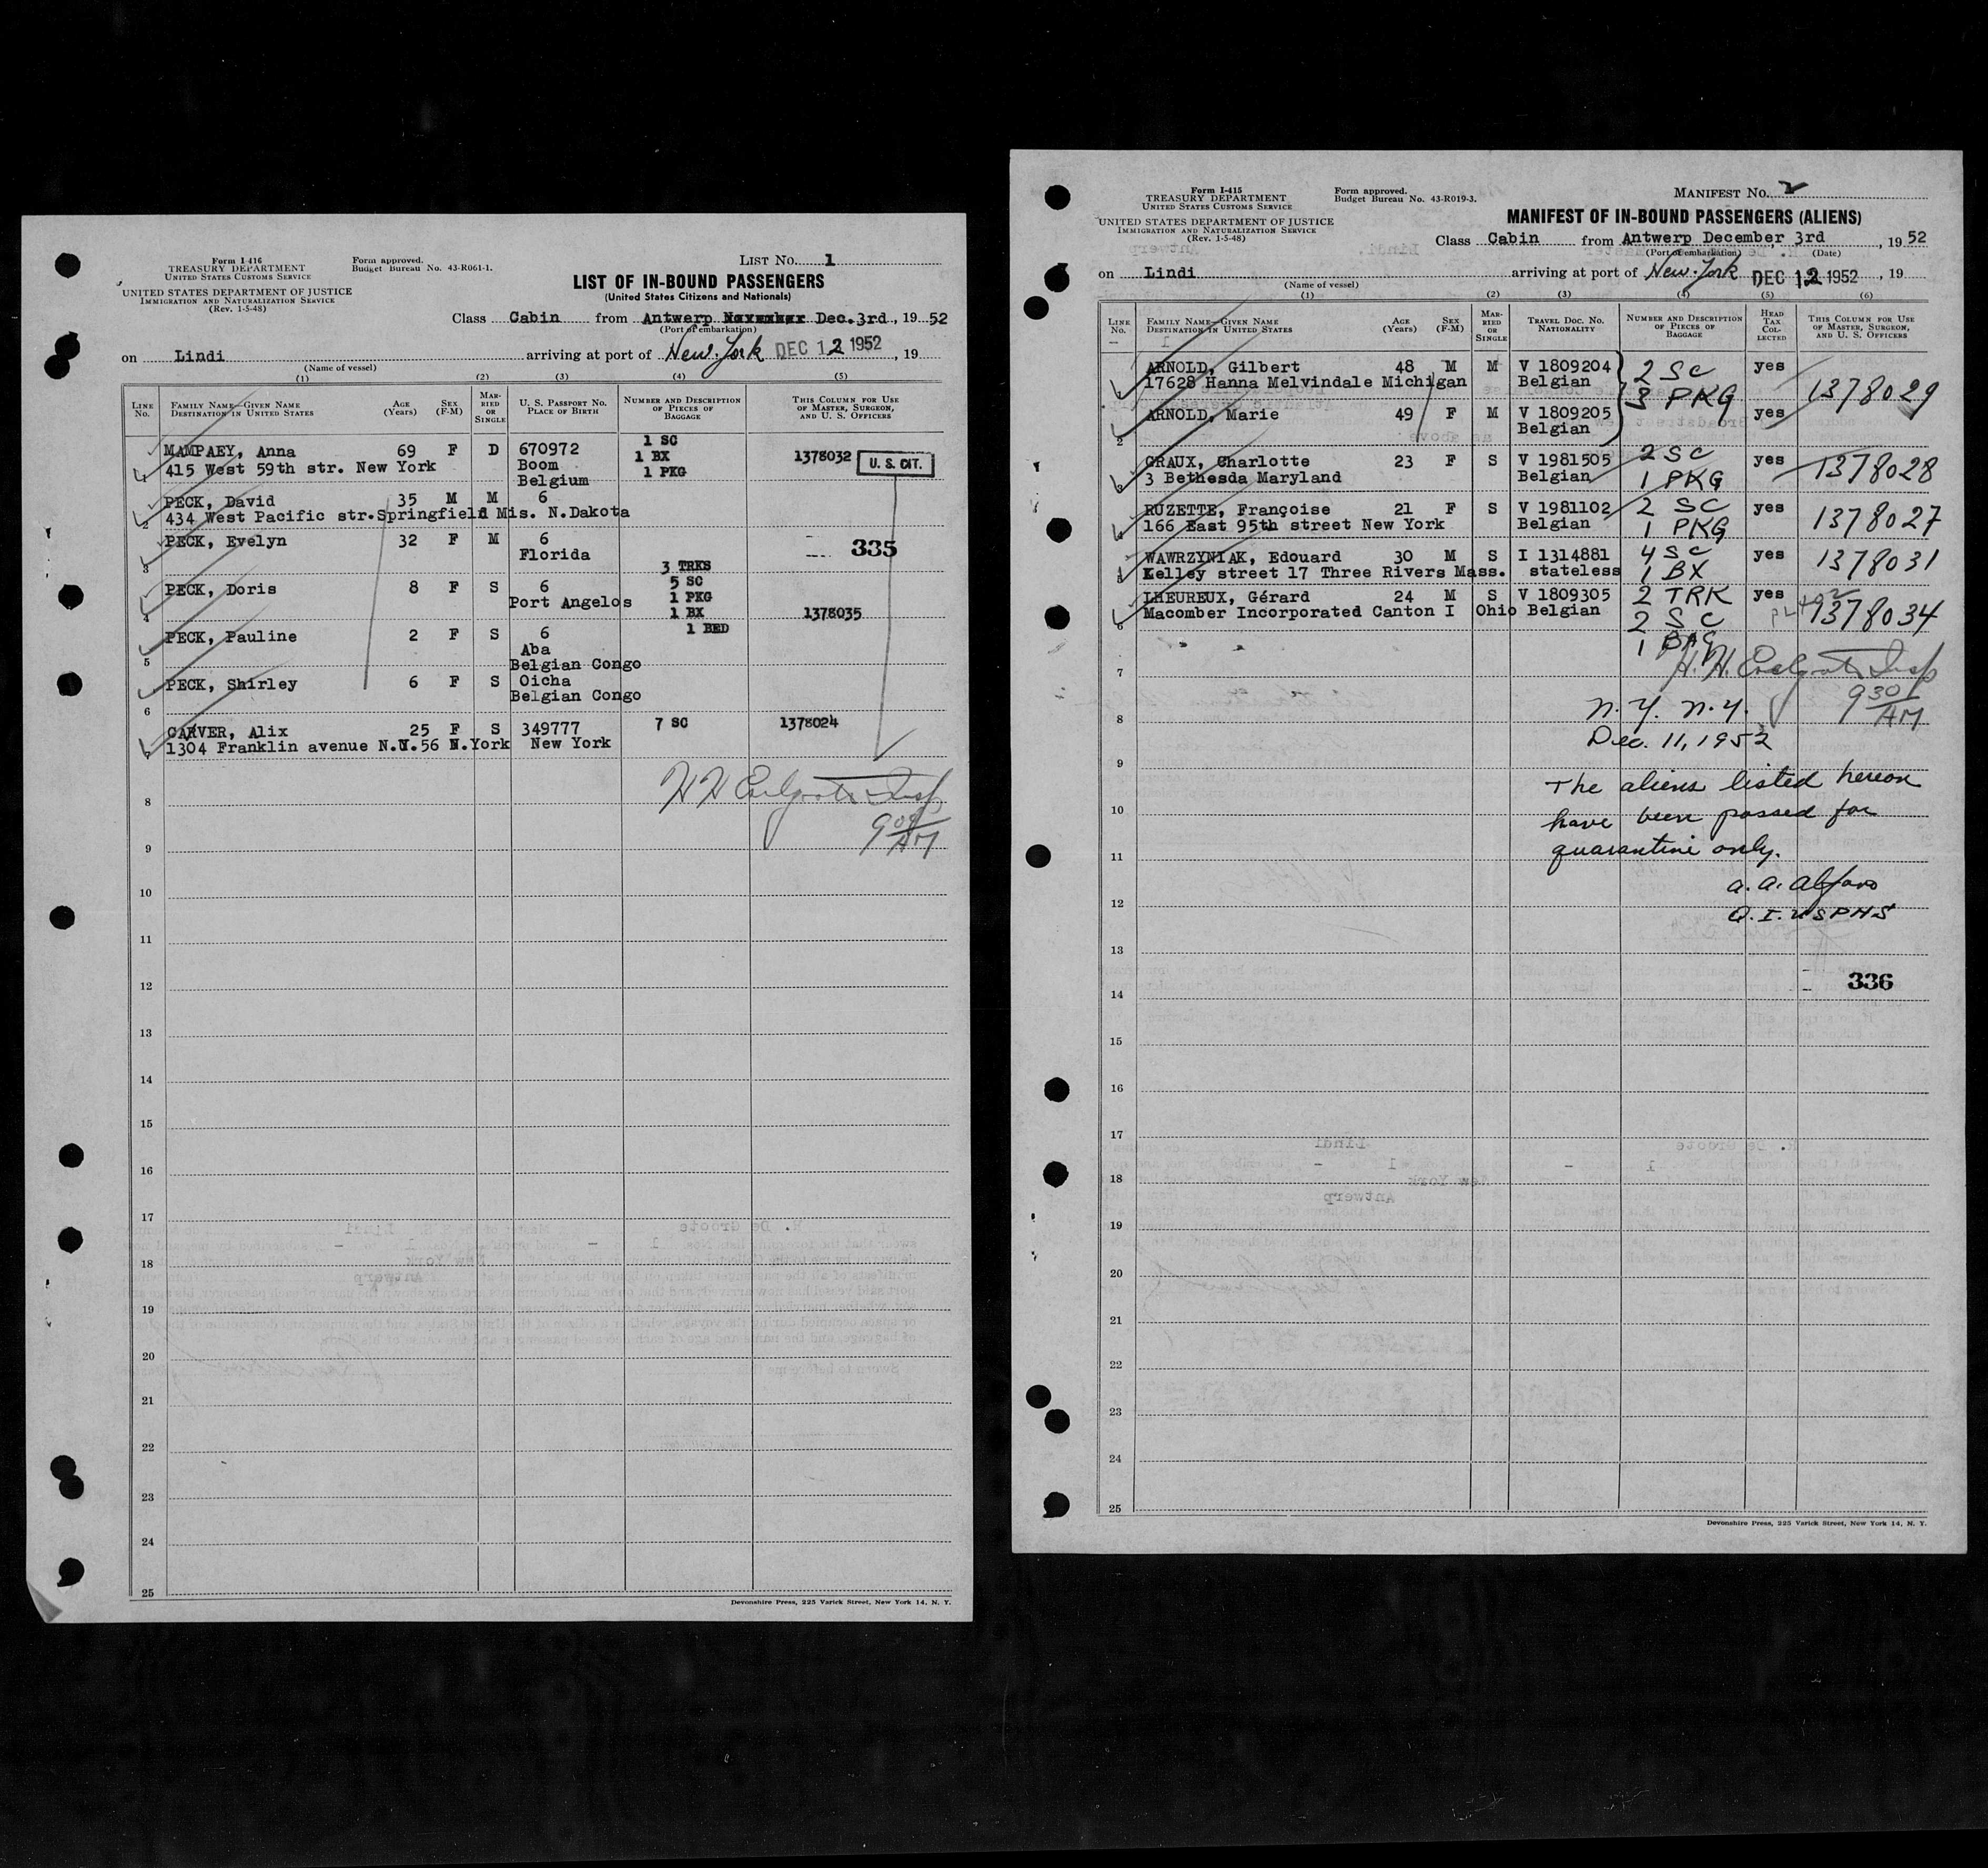 Form I-416
TREASURY DEPARTMENT
UNITED STATES CUSTOMS SERVICE
Form approved.
Budget Bureau No. 43-R061-1.
LIST No. 1
UNITED STATES DEPARTMENT OF JUSTICE
IMMIGRATION AND NATURALIZATION SERVICE
(Rev. 1-5-48)
LIST OF IN-BOUND PASSENGERS
(United States Citizens and Nationals)
Class Cabin from Antwerp Dec. 3rd, 1952
(Port of embarkation)
on Lindi arriving at port of New York DEC 12 1952, 19
(Name of vessel)
(1) (2) (3) (4) (5)
LINE No. FAMILY NAME—GIVEN NAME DESTINATION IN UNITED STATES AGE (Years) SEX (F-M) MARRIED OR SINGLE U. S. PASSPORT NO. PLACE OF BIRTH NUMBER AND DESCRIPTION OF PIECES OF BAGGAGE THIS COLUMN FOR USE OF MASTER, SURGEON, AND U. S. OFFICERS
1 MAMPAEY, Anna 69 F D 670972 1 SC 1378032 U. S. CIT.
415 West 59th str. New York Boom Belgium 1 BX 1 PKG
2 PECK, David 35 M M 6
434 West Pacific str.Springfield Mis. N.Dakota
3 PECK, Evelyn 32 F M 6 335
Florida 3 TRKS
4 PECK, Doris 8 F S 6 5 SC
Port Angelos 1 PKG
1 BX 1378035
5 PECK, Pauline 2 F S 6 1 BED
Aba
Belgian Congo
6 PECK, Shirley 6 F S Oicha
Belgian Congo
CARVER, Alix 25 F S 349777 7 SC 1378024
1304 Franklin avenue N.Y.56 N.York New York
8
9 00 AM
9
10
11
12
13
14
15
16
17
18
19
20
21
22
23
24
25
Devonshire Press, 225 Varick Street, New York 14, N. Y.
Form I-415
TREASURY DEPARTMENT
UNITED STATES CUSTOMS SERVICE
Form approved.
Budget Bureau No. 43-R019-3.
MANIFEST No. 2
UNITED STATES DEPARTMENT OF JUSTICE
IMMIGRATION AND NATURALIZATION SERVICE
(Rev. 1-5-48)
MANIFEST OF IN-BOUND PASSENGERS (ALIENS)
Class Cabin from Antwerp December 3rd, 1952
(Port of embarkation) (Date)
on Lindi arriving at port of New York DEC 12 1952, 19
(Name of vessel)
(1) (2) (3) (4) (5) (6)
LINE No. FAMILY NAME—GIVEN NAME DESTINATION IN UNITED STATES AGE (Years) SEX (F-M) MARRIED OR SINGLE TRAVEL DOC. NO. NATIONALITY NUMBER AND DESCRIPTION OF PIECES OF BAGGAGE HEAD TAX COLLECTED THIS COLUMN FOR USE OF MASTER, SURGEON, AND U. S. OFFICERS
ARNOLD, Gilbert 48 M M V 1809204 2 SC yes 1378029
17628 Hanna Melvindale Michigan Belgian 3 PKG
2 ARNOLD, Marie 49 F M V 1809205 yes
Belgian
GRAUX, Charlotte 23 F S V 1981505 2 SC yes 1378028
3 Bethesda Maryland Belgian 1 PKG
RUZETTE, Françoise 21 F S V 1981102 2 SC yes 1378027
166 East 95th street New York Belgian 1 PKG
WAWRZYNIAK, Edouard 30 M S I 1314881 4 SC yes 1378031
Kelley street 17 Three Rivers Mass. stateless 1 BX
LHEUREUX, Gérard 24 M S V 1809305 2 TRK yes 1378034
6 Macomber Incorporated Canton I Ohio Belgian 2 SC
1 BAG
7
9 30 AM
8 N. Y. N. Y.
Dec. 11, 1952
9
The aliens listed hereon
10 have been passed for
11 quarantine only.
12 a. a. Alfaro
Q. I. USPHS
13
14 336
15
16
17
18
19
20
21
22
23
24
25
Devonshire Press, 225 Varick Street, New York 14, N. Y.